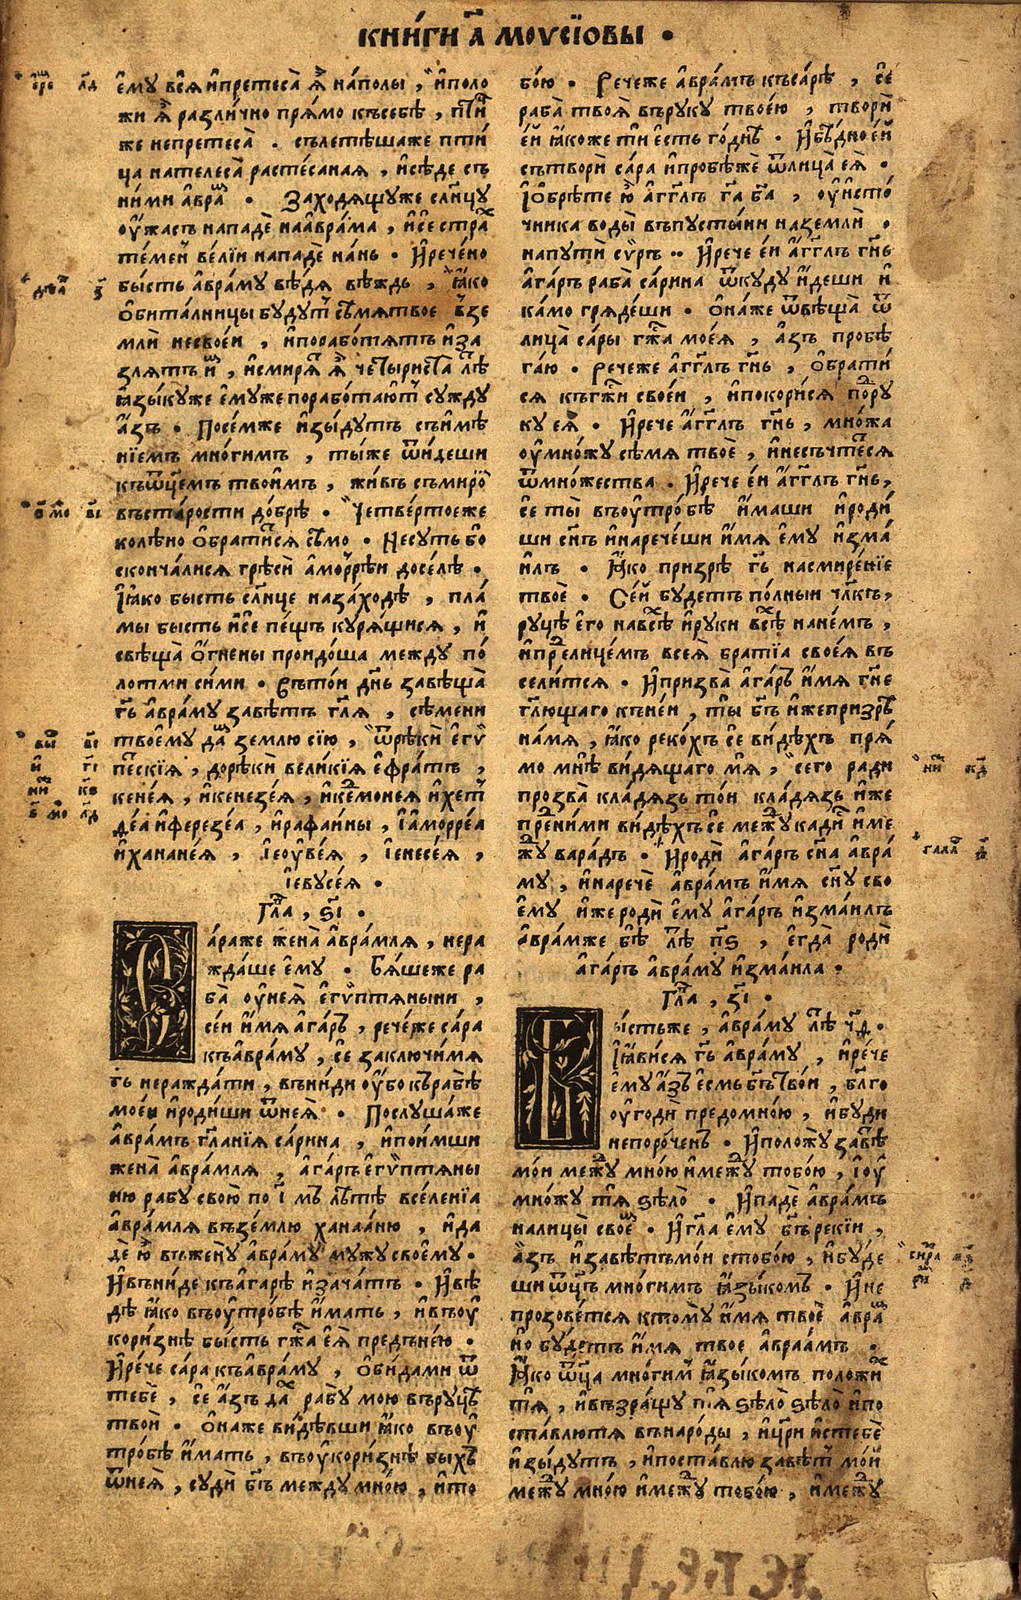 кни́ги а҃ моѵсїовы •
е҆му̀ всѧ и҆претеса̀ ѧ҆̀ на́полы , и҆поло
жи ѧ҆̀ разли́чно прѧ́мо къ себѣ̀ , пти́ц
же непретеса̀ • сълетѣ́шаже пти́
ца нателеса̀ расте́саная , и҆сѣ́де съ
ни́ми а҆вра́м • Заходѧщуже слн҃цу
оу҆́жасъ нападѐ наа҆вра́ма , и҆се стра́х
те́мен ве́лїи нападѐ на́нь • И҆рече́но
бы́сть а҆вра́му вѣ́дѧ вѣ́ждь , ꙗ҆́ко
ѻ҆бита́лницы бу́дут сѣ́мѧтвое вземли
млѝ несвое́и , и҆порабо́тѧтъ и҆за
злѧ́тъ и҆̀х , и҆смирѧ́т ѧ҆̀ четы́риста лѣ́т
ꙗ҆зы́куже е҆му́же порабо́таютъ сужду̀
а҆́зъ • Посе́мже и҆зы́дутъ съи҆мѣ́
нїемъ мно́гимъ , ты́же ѿи́деши
къѿц҃емъ твои́мъ , жи́въ съми́ром
въста́рости до́брѣ • Четве́ртоеже
колѣ́но ѻ҆братѧ́тсѧ сѣ́мо • Несу́ть бо
сконча́лисѧ грѣсѝ а҆морре́и досе́лѣ •
І҆ꙗ҆́ко бысть слн҃це наза́ходѣ , пла́
мы бысть и҆сѐ пе́щъ курѧ́щисѧ , и҆
свѣща̀ ѻ҆́гнены проидо́ша между по́
лотми си́ми • Въто́и дн҃ь завѣща̀
гь҃ а҆вра́му завѣ́тъ гл҃ѧ , сѣ́мени
твоему̀ да́м зе́млю сїю̀ , ѿрѣкѝ е҆гѵ́
пескїѧ , дорѣкѝ вели́кїѧ е҆фра́тъ ,
кене́ѧ , и҆кенезе́ѧ , и҆кедмоне́ѧ и҆хет
де́а и҆ферезе́а , и҆рафаи́ны , і҆аморре́а
и҆ханане́ѧ , і҆еоуве́ѧ , і҆енесе́ѧ ,
і҆евусе́ѧ •
Гла̀ , ѕ҃і •
Са́раже жена̀ а҆вра́млѧ , нера
жда́ше е҆му̀ • Бѧ́шеже ра
ба̀ оу҆неѧ̀ е҆гѵ́птѧныни ,
се́и и҆́мѧ а҆га́ръ , рече́же са́ра
къа҆вра́му , сѐ заключи́мѧ
гь҃ неражда́ти , въни́ди оу҆́бо къ рабѣ̀
мое́и и҆роди́ши ѿнеѧ̀ • Послу́шаже
а҆вра́мъ гл҃а́нїѧ са́рина , и҆пои́мши
жена̀ а҆вра́млѧ , а҆га́ръ е҆гѵ́птѧны
ню рабу̀ свою̀ по і҃ мъ лѣ́тѣ вселе́нїа
а҆вра́млѧ въ зе́млю ханаа́ню , и҆да
дѐ ю҆̀ въжену̀ а҆вра́му му́жу своему̀ •
И҆въни́де къа҆га́рѣ и҆зача́тъ • И҆ви́
дѣ ꙗ҆́ко въоу҆тро́бѣ и҆́мать , и҆въоу҆
кори́знѣ бы́сть гж҃а е҆ѧ̀ предъне́ю •
И҆ре́че са́ра къа҆вра́му , ѻ҆би́дами ѿ
тебѐ , сѐ а҆́зъ да́х рабу̀ мою въ руцѣ́
твои̂ • ѻ҆на́же ви́дѣвши ꙗ҆́ко въоу҆
тро́бѣ и҆́мать , въоу҆кори́знѣ бы́хъ
ѿнеѧ̀ , судѝ бг҃ъ между мно́ю , и҆то
бо́ю • Рече́же а҆вра́мъ къса́рѣ , сѐ
раба̀ твоѧ̀ въруку̀ твое́ю , творѝ
е҆́и ꙗ҆́коже тѝ е҆сть го́днѣ • И҆бѣ́дно е҆́и
сътворѝ са́ра и҆пробѣ́же ѿлица̀ еѧ̀ •
І҆ѻбрѣ́те ю҆̀ а҆́гг҃лъ га҃ ба҃ , оу҆исто́
чника воды̀ въпусты́ни наземлѝ •
напутѝ сѵ́ръ •• И҆рече е҆́и а҆́гг҃лъ гн҃ь
а҆га́ръ раба̀ са́рина ѿку́ду и҆́деши и҆
ка́мо грѧде́ши • ѻ҆на́же ѿвѣща̀ ѿ
лица̀ са́ры гж҃а моеѧ̀ , а҆зъ пробѣ
га́ю • Рече́же а҆́гг҃лъ гн҃ь , ѻ҆брати́
сѧ къгж҃и свое́и , и҆покори́сѧ под ру
ку еѧ̀ • И҆рече а҆́гг҃лъ гн҃ь , мно́жа
оу҆мно́жу сѣ́мѧ твоѐ , и҆несъчте́сѧ
ѿмно́жества • И҆рече е҆́и а҆́гг҃лъ гн҃ь ,
сѐ ты̀ въоу҆тро́бѣ и҆́маши и҆роди́
ши сн҃ъ и҆нарече́ши и҆́мѧ е҆му̀ и҆зма
илъ • ꙗ҆́ко призрѣ̀ гь҃ насмире́нїе
твоѐ • Се́и бу́детъ по́лныи чл҃къ ,
руцѣ̀ е҆го̀ навсѣ́х и҆ру́ки всѣ́х нане́мъ ,
и҆пред лице́мъ всеѧ̀ бра́тїа своеѧ̀ въ
сели́тсѧ • И҆призва̀ а҆га́ръ и҆́мѧ гн҃е
гл҃ющаго къне́и , ты̀ бг҃ъ и҆жепризрѣ̀
на́мѧ , ꙗ҆́ко реко́хъ сѐ ви́дѣхъ прѧ́
мо мнѣ̀ ви́дѧщаго мѧ̀ , сего ради
прозва̀ кла́дѧзь то́и кла́дѧзь и҆́же
пред ни́ми ви́дѣхъ сѐ между кади́с и҆ме
жду вара́дъ • И҆родѝ а҆га́ръ сн҃а а҆вра́
му , и҆наречѐ а҆вра́мъ и҆́мѧ сн҃у сво
ему̀ и҆же родѝ е҆му̀ а҆га́ръ и҆зма́илъ
а҆вра́мже бѣ̀ лѣ́т п҃ѕ , е҆гда̀ родѝ
а҆га́ръ а҆вра́му и҆зма́ила •
Гла̀ , з҃і •
Бы́стьже , а҆вра́му лѣ́т ч҃ѳ •
І҆ꙗ҆ви́сѧ гь҃ а҆вра́му , и҆ре́че
е҆му̀ а҆́зъ е҆смь бг҃ъ тво́и , бл҃го
оу҆годѝ предомно́ю , и҆бу́ди
непоро́ченъ • И҆положу̀ завѣ́т
мо́и между мно́ю и҆между тобо́ю , і҆оу҆
мно́жу тѧ̀ ѕѣло̀ • И҆падѐ а҆вра́мъ
налицы̀ свое́м • И҆гл҃а е҆му̀ бг҃ъ реки́и ,
а҆́зъ и҆завѣ́тъмо́и стобо́ю , и҆бу́де
ши ѿц҃ъ мно́гимъ ꙗ҆зы́комъ • И҆не
прозове́тсѧ ктому̀ и҆́мѧ твоѐ а҆вра́м
но бу́детъ и҆́мѧ твое а҆враа́мъ •
ꙗ҆́ко ѿц҃а мно́гим ꙗ҆зы́комъ положи́х
тѧ̀ , и҆възращу̀ тѧ̀ ѕѣло̀ ѕѣло̀ и҆по
ста́влютѧ вънаро́ды , и҆цр҃и и҆стебѐ
и҆зы́дутъ , и҆поста́влю завѣ́т мо́и
между мно́ю и҆между тобо́ю , и҆между